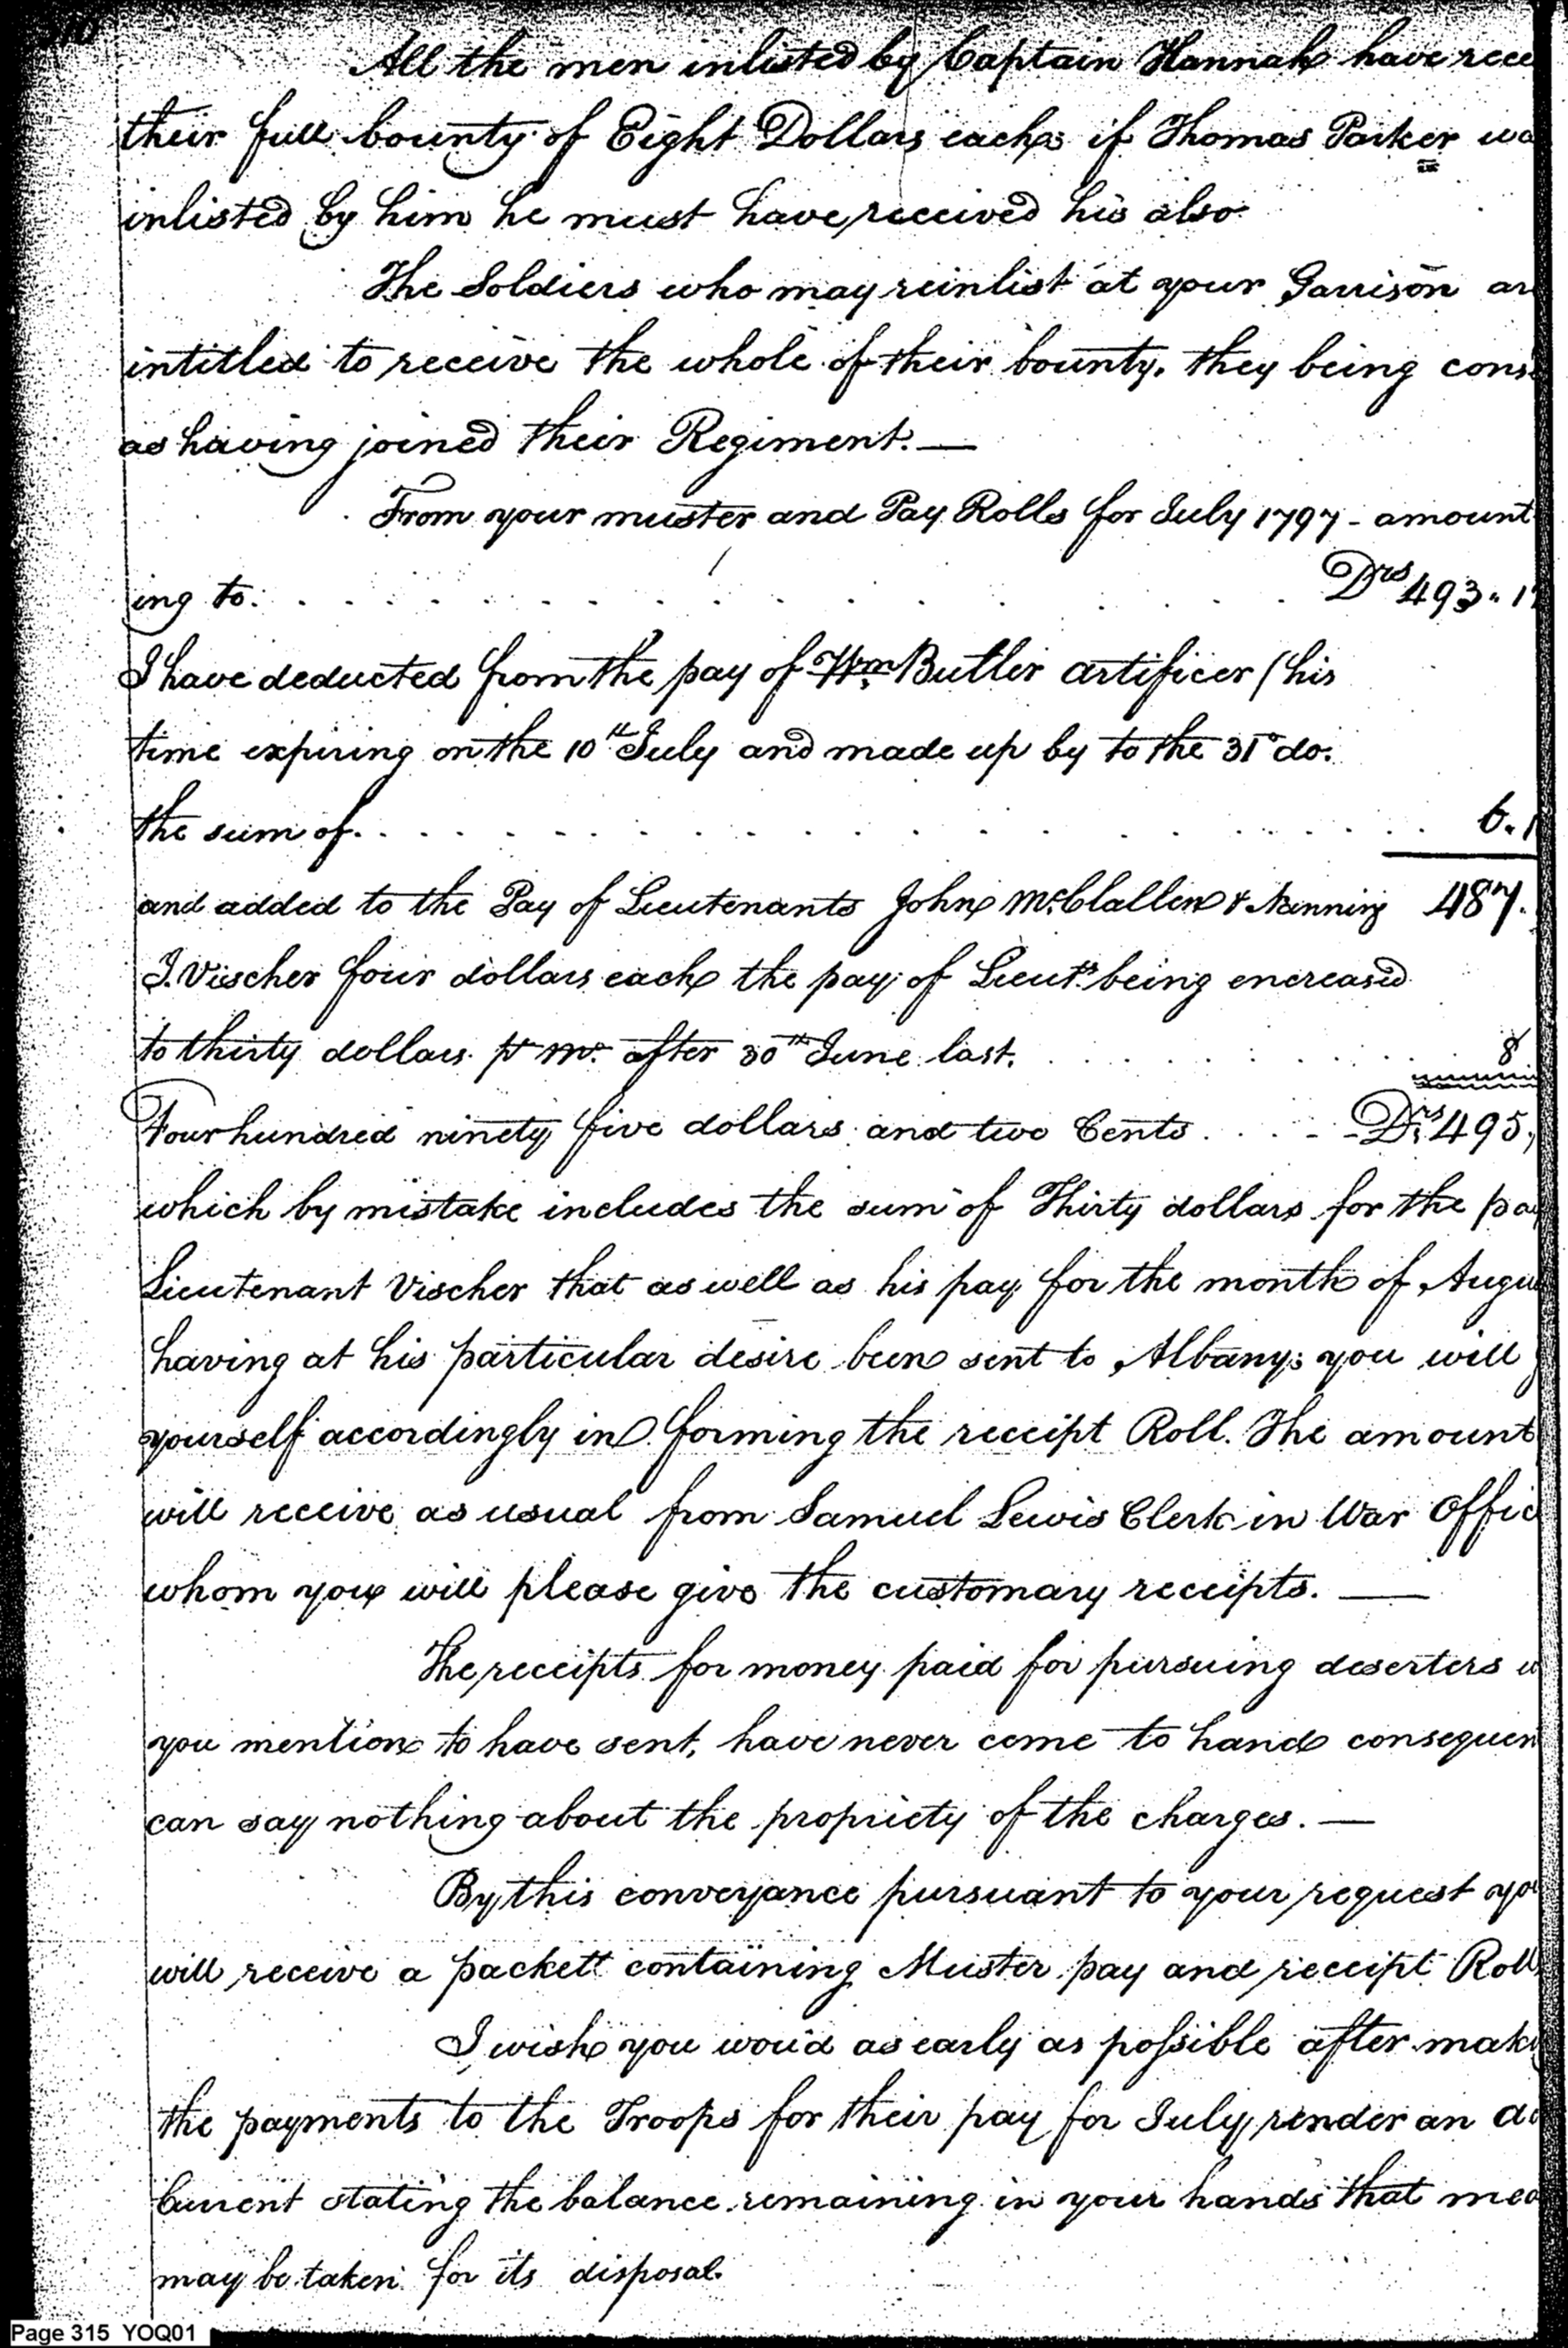 All the men inlisted by Captain Hannah have rece
their full bounty of Eight Dollars each; if Thomas Parker wa
inlisted by him he must have received his also
The Soldiers who may reinlist at your Garrison ar
intitled to receive the whole of their bounty, they being cons
as having joined their Regiment. —
From your muster and Pay Rolls for July 1797 - amount
ing to. . . . . . . . . . . . . . Drs 493. 1
I have deducted from the pay of Wm. Butler artificer (his
time expiring on the 10th July and made up by to the 31° do.
the sum of. . . . . . . . . . . . . . 6. 1
and added to the Pay of Lieutenants John McClallen & Nanning 487.
I. Vischer four dollars each the pay of Lieuts. being encreased
to thirty dollars pr mo. after 30th June last. . . . . . . . 8
Four hundred ninety five dollars and two Cents . . . . Drs 495,
which by mistake includes the sum of Thirty dollars for the pay
Lieutenant Vischer that as well as his pay for the month of Augu
having at his particular desire been sent to Albany; you will
yourself accordingly in forming the receipt Roll. The amount
will receive as usual from Samuel Lewis Clerk in War Offic
whom you will please give the customary receipts. —
The receipts for money paid for pursuing deserters w
you mention to have sent, have never come to hand consequen
can say nothing about the propriety of the charges. —
By this conveyance pursuant to your request yo
will receive a packett containing Muster pay and receipt Roll
I wish you wou'd as early as possible after mak
the payments to the Troops for their pay for July render an ac
Current stating the balance remaining in your hands that mea
may be taken for its disposal.
Page 315 YOQ01